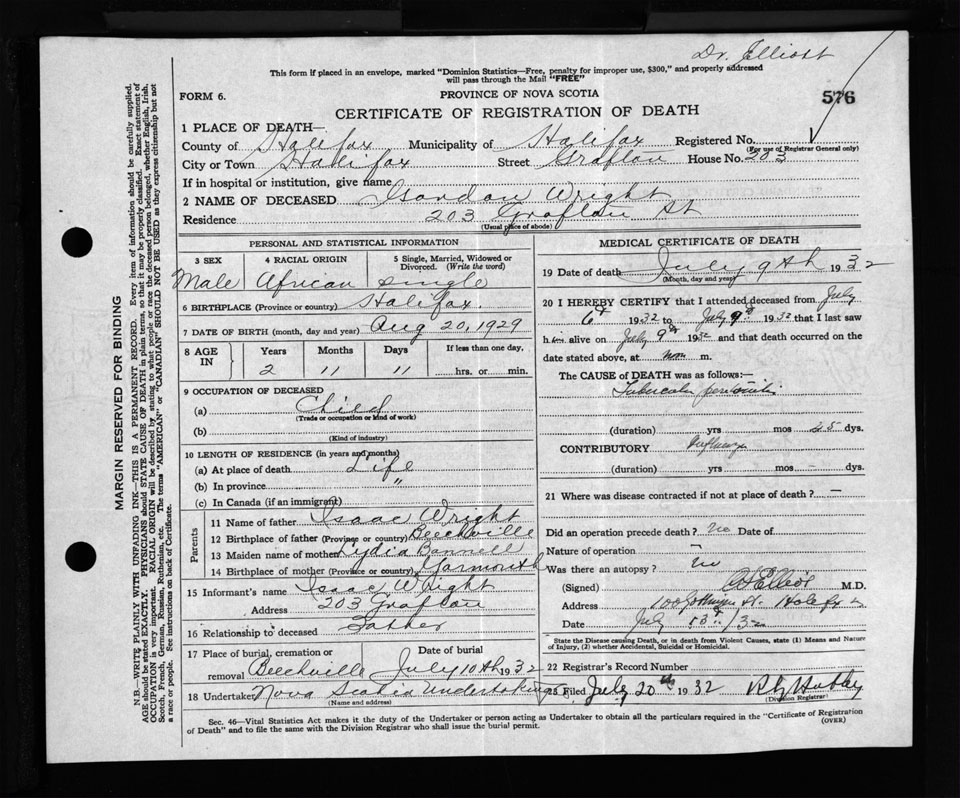 Dr. Elliott
This form if placed in an envelope, marked "Dominion Statistics—Free, penalty for improper use, $300," and properly addressed
will pass through the Mail "FREE"
FORM 6.
PROVINCE OF NOVA SCOTIA
576
CERTIFICATE OF REGISTRATION OF DEATH
1 PLACE OF DEATH—
County of Halifax Municipality of Halifax Registered No.
(For use of Registrar General only)
City or Town Halifax Street Grafton House No. 203
If in hospital or institution, give name
2 NAME OF DECEASED Gordon Wright
Residence 203 Grafton St
(Usual place of abode)
PERSONAL AND STATISTICAL INFORMATION
3 SEX 4 RACIAL ORIGIN 5 Single, Married, Widowed or
Divorced. (Write the word)
Male African Single
6 BIRTHPLACE (Province or country) Halifax
7 DATE OF BIRTH (month, day and year) Aug 20, 1929
8 AGE IN Years Months Days If less than one day,
2 11 11 hrs. or min.
9 OCCUPATION OF DECEASED
(a) Child
(Trade or occupation or kind of work)
(b)
(Kind of industry)
10 LENGTH OF RESIDENCE (in years and months)
(a) At place of death Life
(b) In province "
(c) In Canada (if an immigrant)
Parents
11 Name of father Isaac Wright
12 Birthplace of father (Province or country) Beechville
13 Maiden name of mother Lydia
14 Birthplace of mother (Province or country) Yarmouth
15 Informant's name Isaac Wright
Address 203 Grafton
16 Relationship to deceased Father
17 Place of burial, cremation or Date of burial
removal Beechville July 10th 1932
18 Undertaker Nova Scotia Undertaking
(Name and address)
MEDICAL CERTIFICATE OF DEATH
19 Date of death July 9th 1932
(Month, day and year)
20 I HEREBY CERTIFY that I attended deceased from July
6th 1932 to July 9th 1932 that I last saw
him alive on July 9th 1932 and that death occurred on the
date stated above, at noon m.
The CAUSE of DEATH was as follows:—
Tubercular peritonitis
(duration) yrs mos 25 dys.
CONTRIBUTORY
(duration) yrs mos – dys.
21 Where was disease contracted if not at place of death? –
Did an operation precede death? No Date of
Nature of operation –
Was there an autopsy? No
(Signed) Elliott M.D.
Address
Date July
State the Disease causing Death, or in death from Violent Causes, state (1) Means and Nature
of Injury, (2) whether Accidental, Suicidal or Homicidal.
22 Registrar's Record Number
23 Filed July 20th 1932
(Division Registrar)
Sec. 46—Vital Statistics Act makes it the duty of the Undertaker or person acting as Undertaker to obtain all the particulars required in the "Certificate of Registration
of Death" and to file the same with the Division Registrar who shall issue the burial permit.
(OVER)
MARGIN RESERVED FOR BINDING
N. B.—WRITE PLAINLY WITH UNFADING INK—THIS IS A PERMANENT RECORD. Every item of information should be carefully supplied.
AGE should be stated EXACTLY. PHYSICIANS should STATE CAUSE OF DEATH in plain terms, so that it may be properly classified. Exact statement of
OCCUPATION is very important. RACIAL ORIGIN will be described by stating to what people or race the deceased person belonged, whether English, Irish,
Scotch, French, German, Russian, Ruthenian, etc. The terms "AMERICAN" or "CANADIAN" SHOULD NOT BE USED as they express citizenship but not
a race or people. See instructions on back of Certificate.